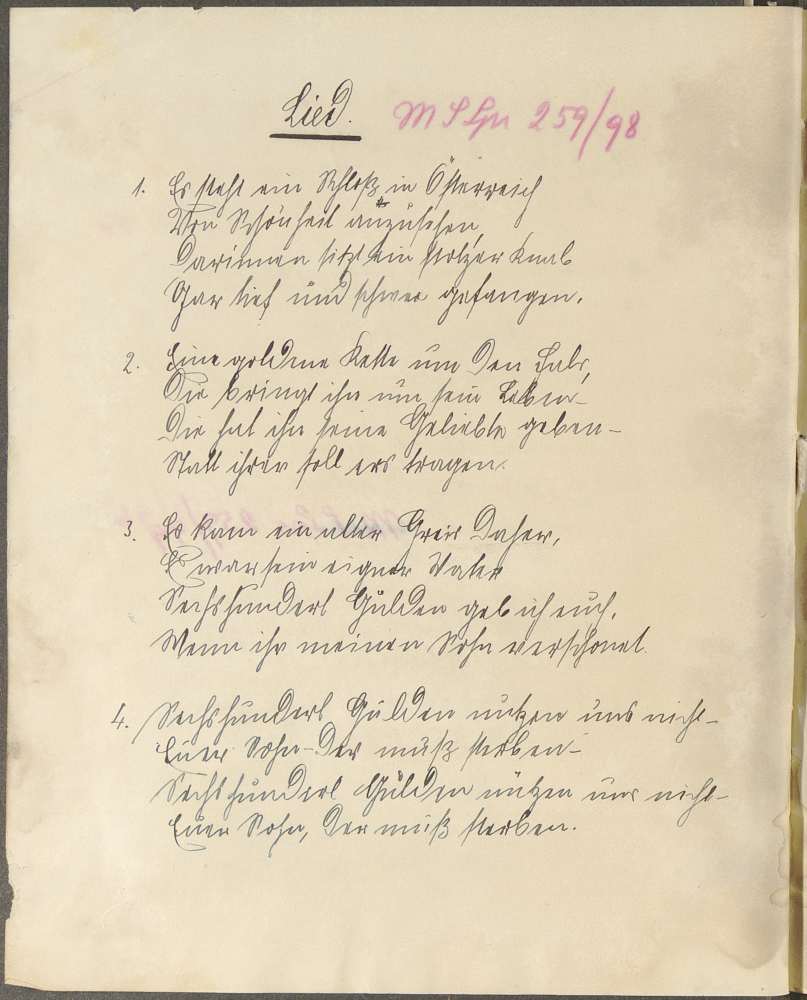 Lied.
M S Gr 259/98
1. Es steht ein Schloß in Österreich
Von Schönheit anzusehen,
Darinnen sitzt ein stolzer Knab
Gar tief und schwer gefangen.
2. Eine goldene Kette um den Hals,
Die bringt ihn um sein Leben-
Die hat ihn seine Geliebte geben-
Statt ihrer soll ers tragen.
3. Es kam ein alter Greis daher,
Es war sein eigner Vater
Sechshundert Gulden geb ich euch,
Wenn ihr meinen Sohn verschonet.
4. Sechshundert Gulden nutzen uns nicht-
Euer Sohn-der muß sterben-
Sechshundert Gulden nützen uns nicht-
Euer Sohn, der muß sterben.